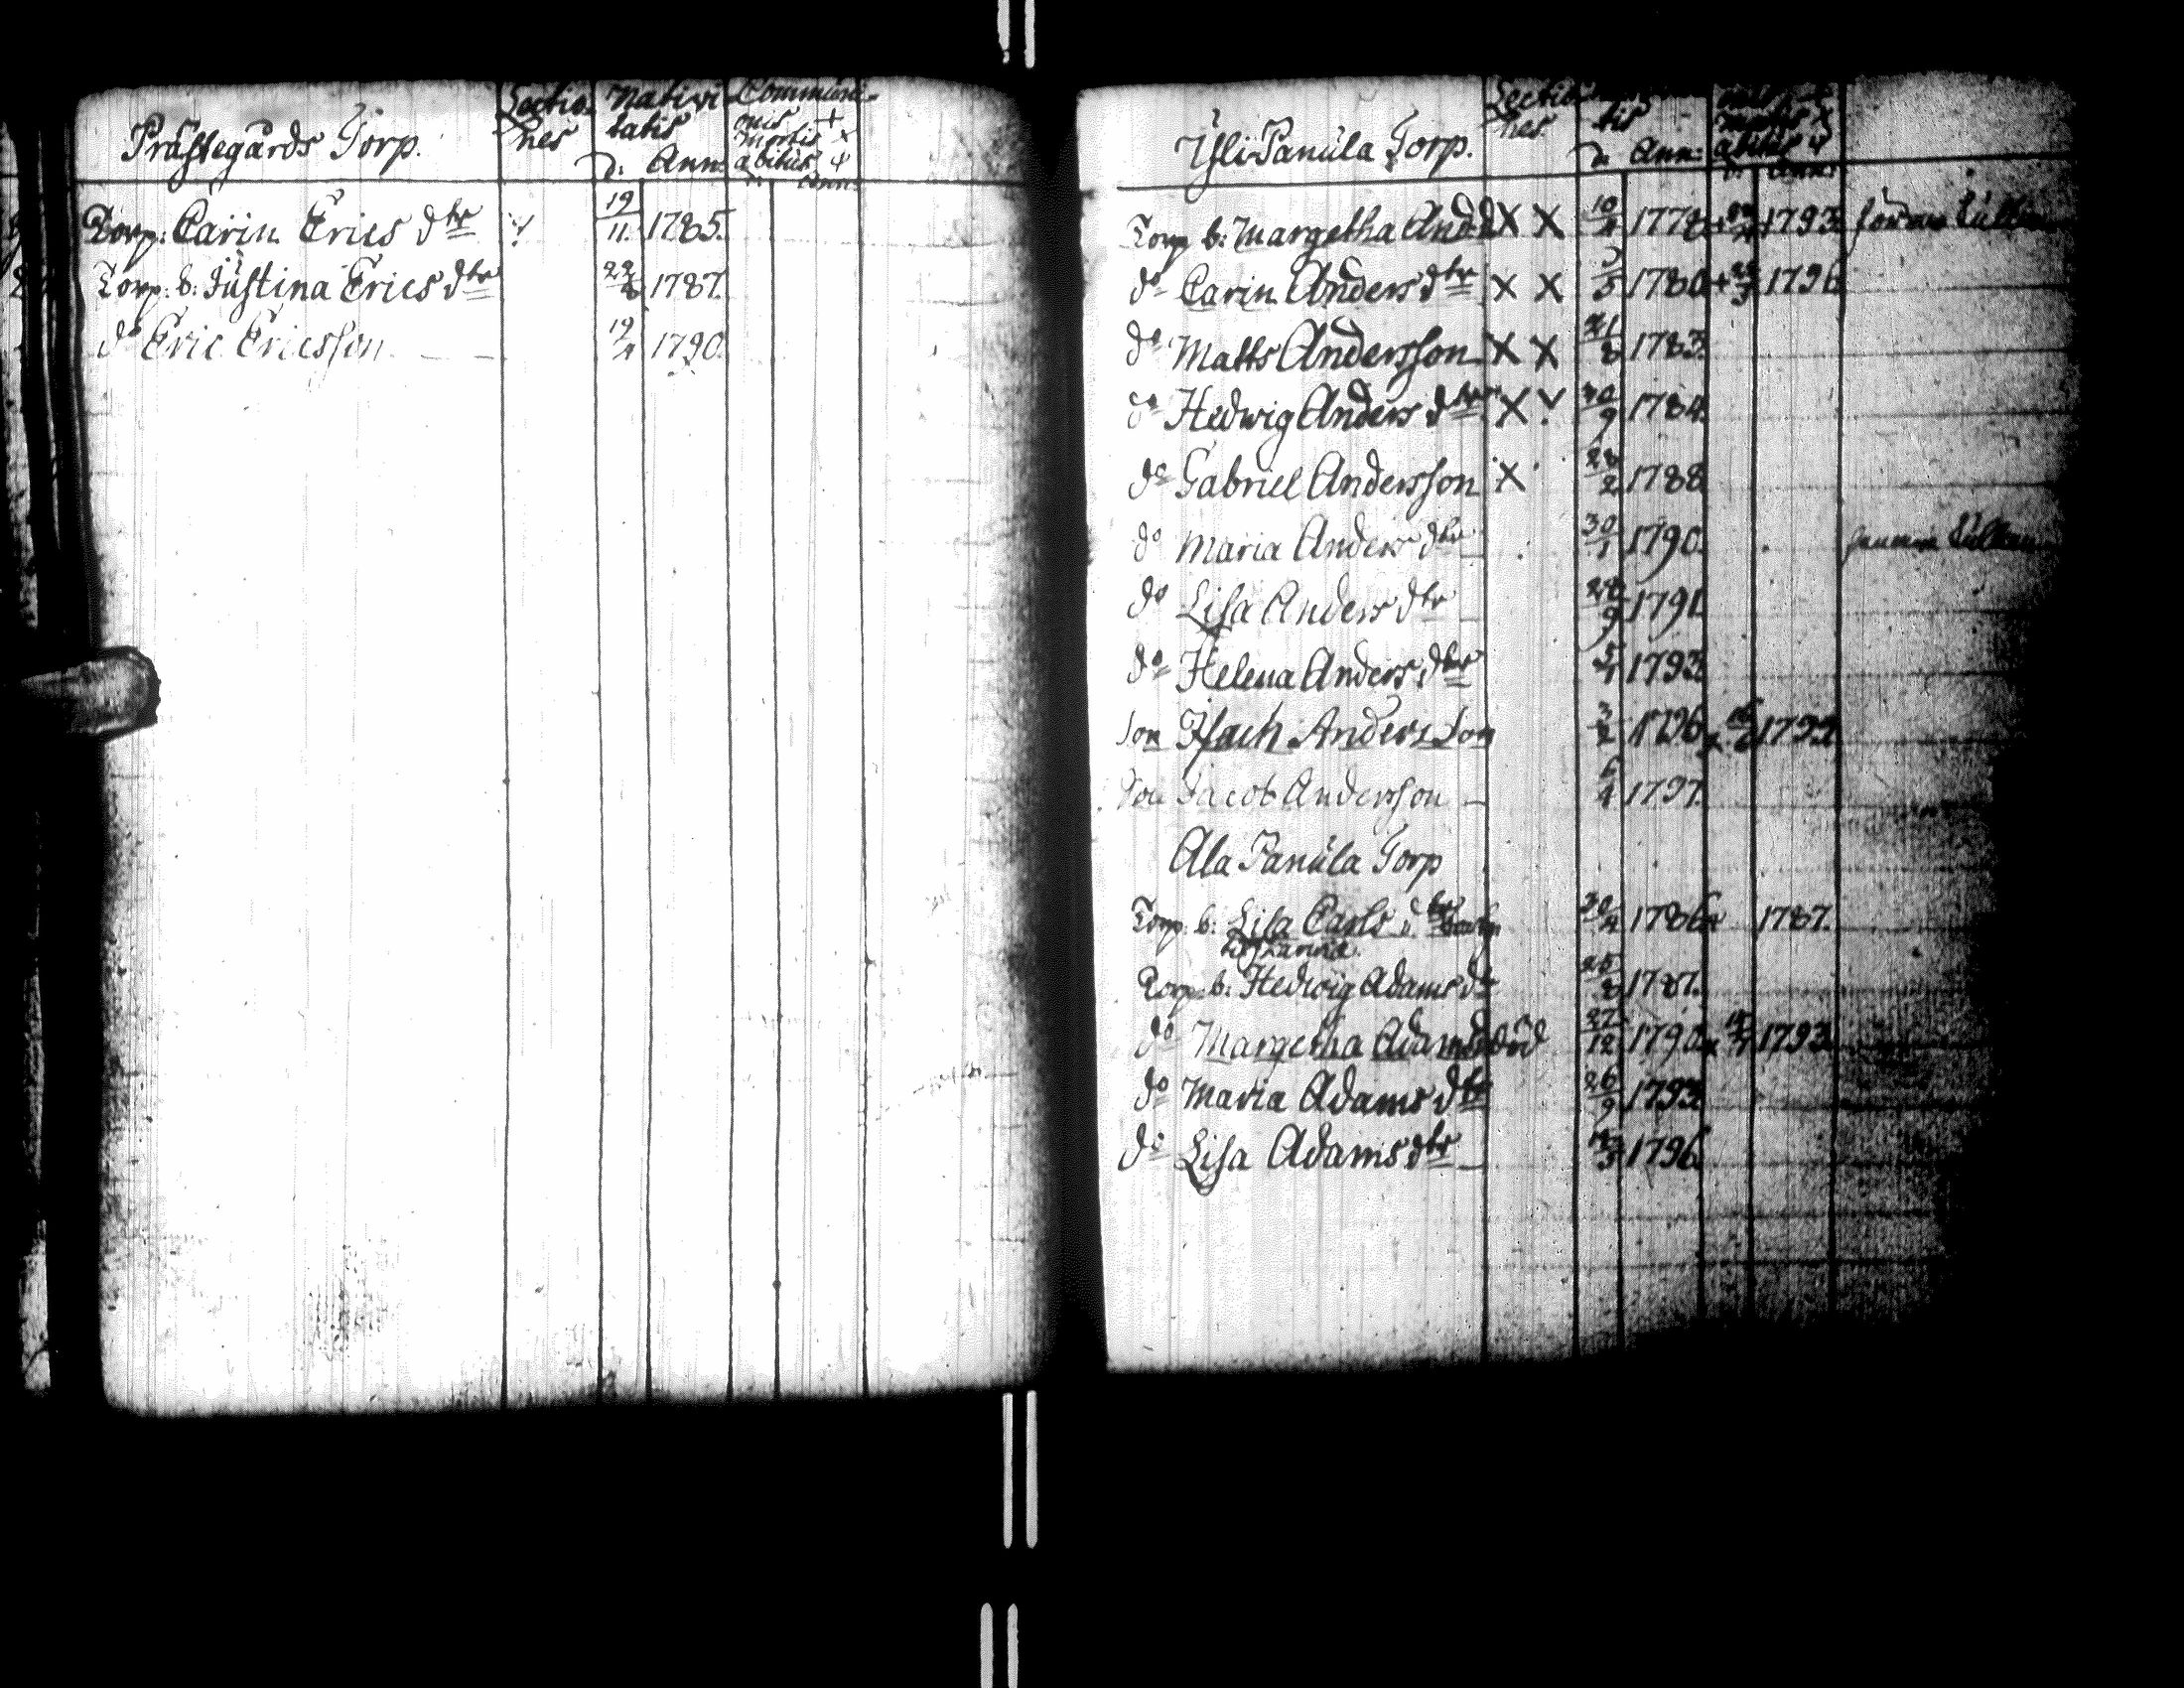 Prästegårds Torp.
Lectio nes
Nativi tatis
D: Ann:
Communi onis +
mortis x
abitus ψ
Ann:
Torp: Carin Erics dtr 19/11 1785.
Torp: b: Justina Erics dtr 1787.
do Eric Ericsson 19/4 1790.
Yli Panula Torp.
Lectio nes
tis
D: Ann:
mortis x
abitus ψ
Ann:
Torp b: Margetha And. d X X 10/4 + 1793
do Carin Anders dtr X X 1780 + 1796
do Matts Andersson X X 21/8 1783.
do Hedwig Anders dtr X 30/9 1784.
do Gabriel Andersson X 28/2 1788
do Maria Anders dtr 30/1 1790.
do Lisa Anders dtr 28/9 1791
do Helena Anders dtr 1793
son Isach Anders son 3/2 1796 x
son Jacob Andersson 6/4 1797.
Ala Panula Torp
Torp: b: Lisa Carls 1786 1787.
Torp: b: Hedwig Adams dr 25/8 1787.
do Margetha Adams död 27/12 1790 x 1793
do Maria Adams dtr 26/9 1793
do Lisa Adams dtr 1796